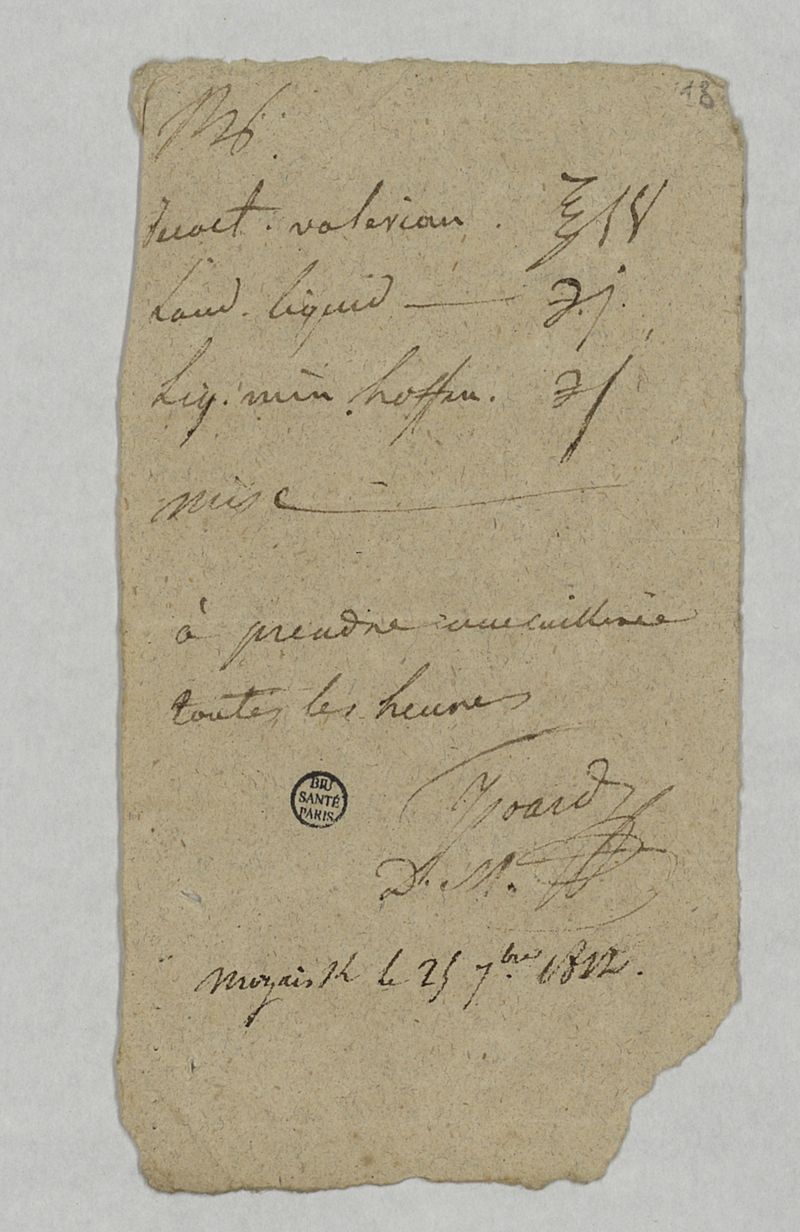 18
decoct. valerian. ℥ IV
Laud. liquid — j.
Liq. min hoffm.
misc
à prendre une cuillerée
toutes les heures
Yoard
D. M.
BIU
SANTÉ
PARIS
Mozaisk le 25 7bre 1812.